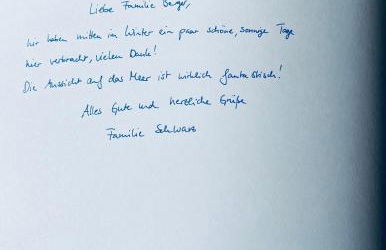 Liebe Familie Berger,
wir haben mitten im Winter ein paar schöne, sonnige Tage
hier verbracht, vielen Dank!
Die Aussicht auf das Meer ist wirklich fantastisch!
Alles Gute und herzliche Grüße
Familie Schwarz